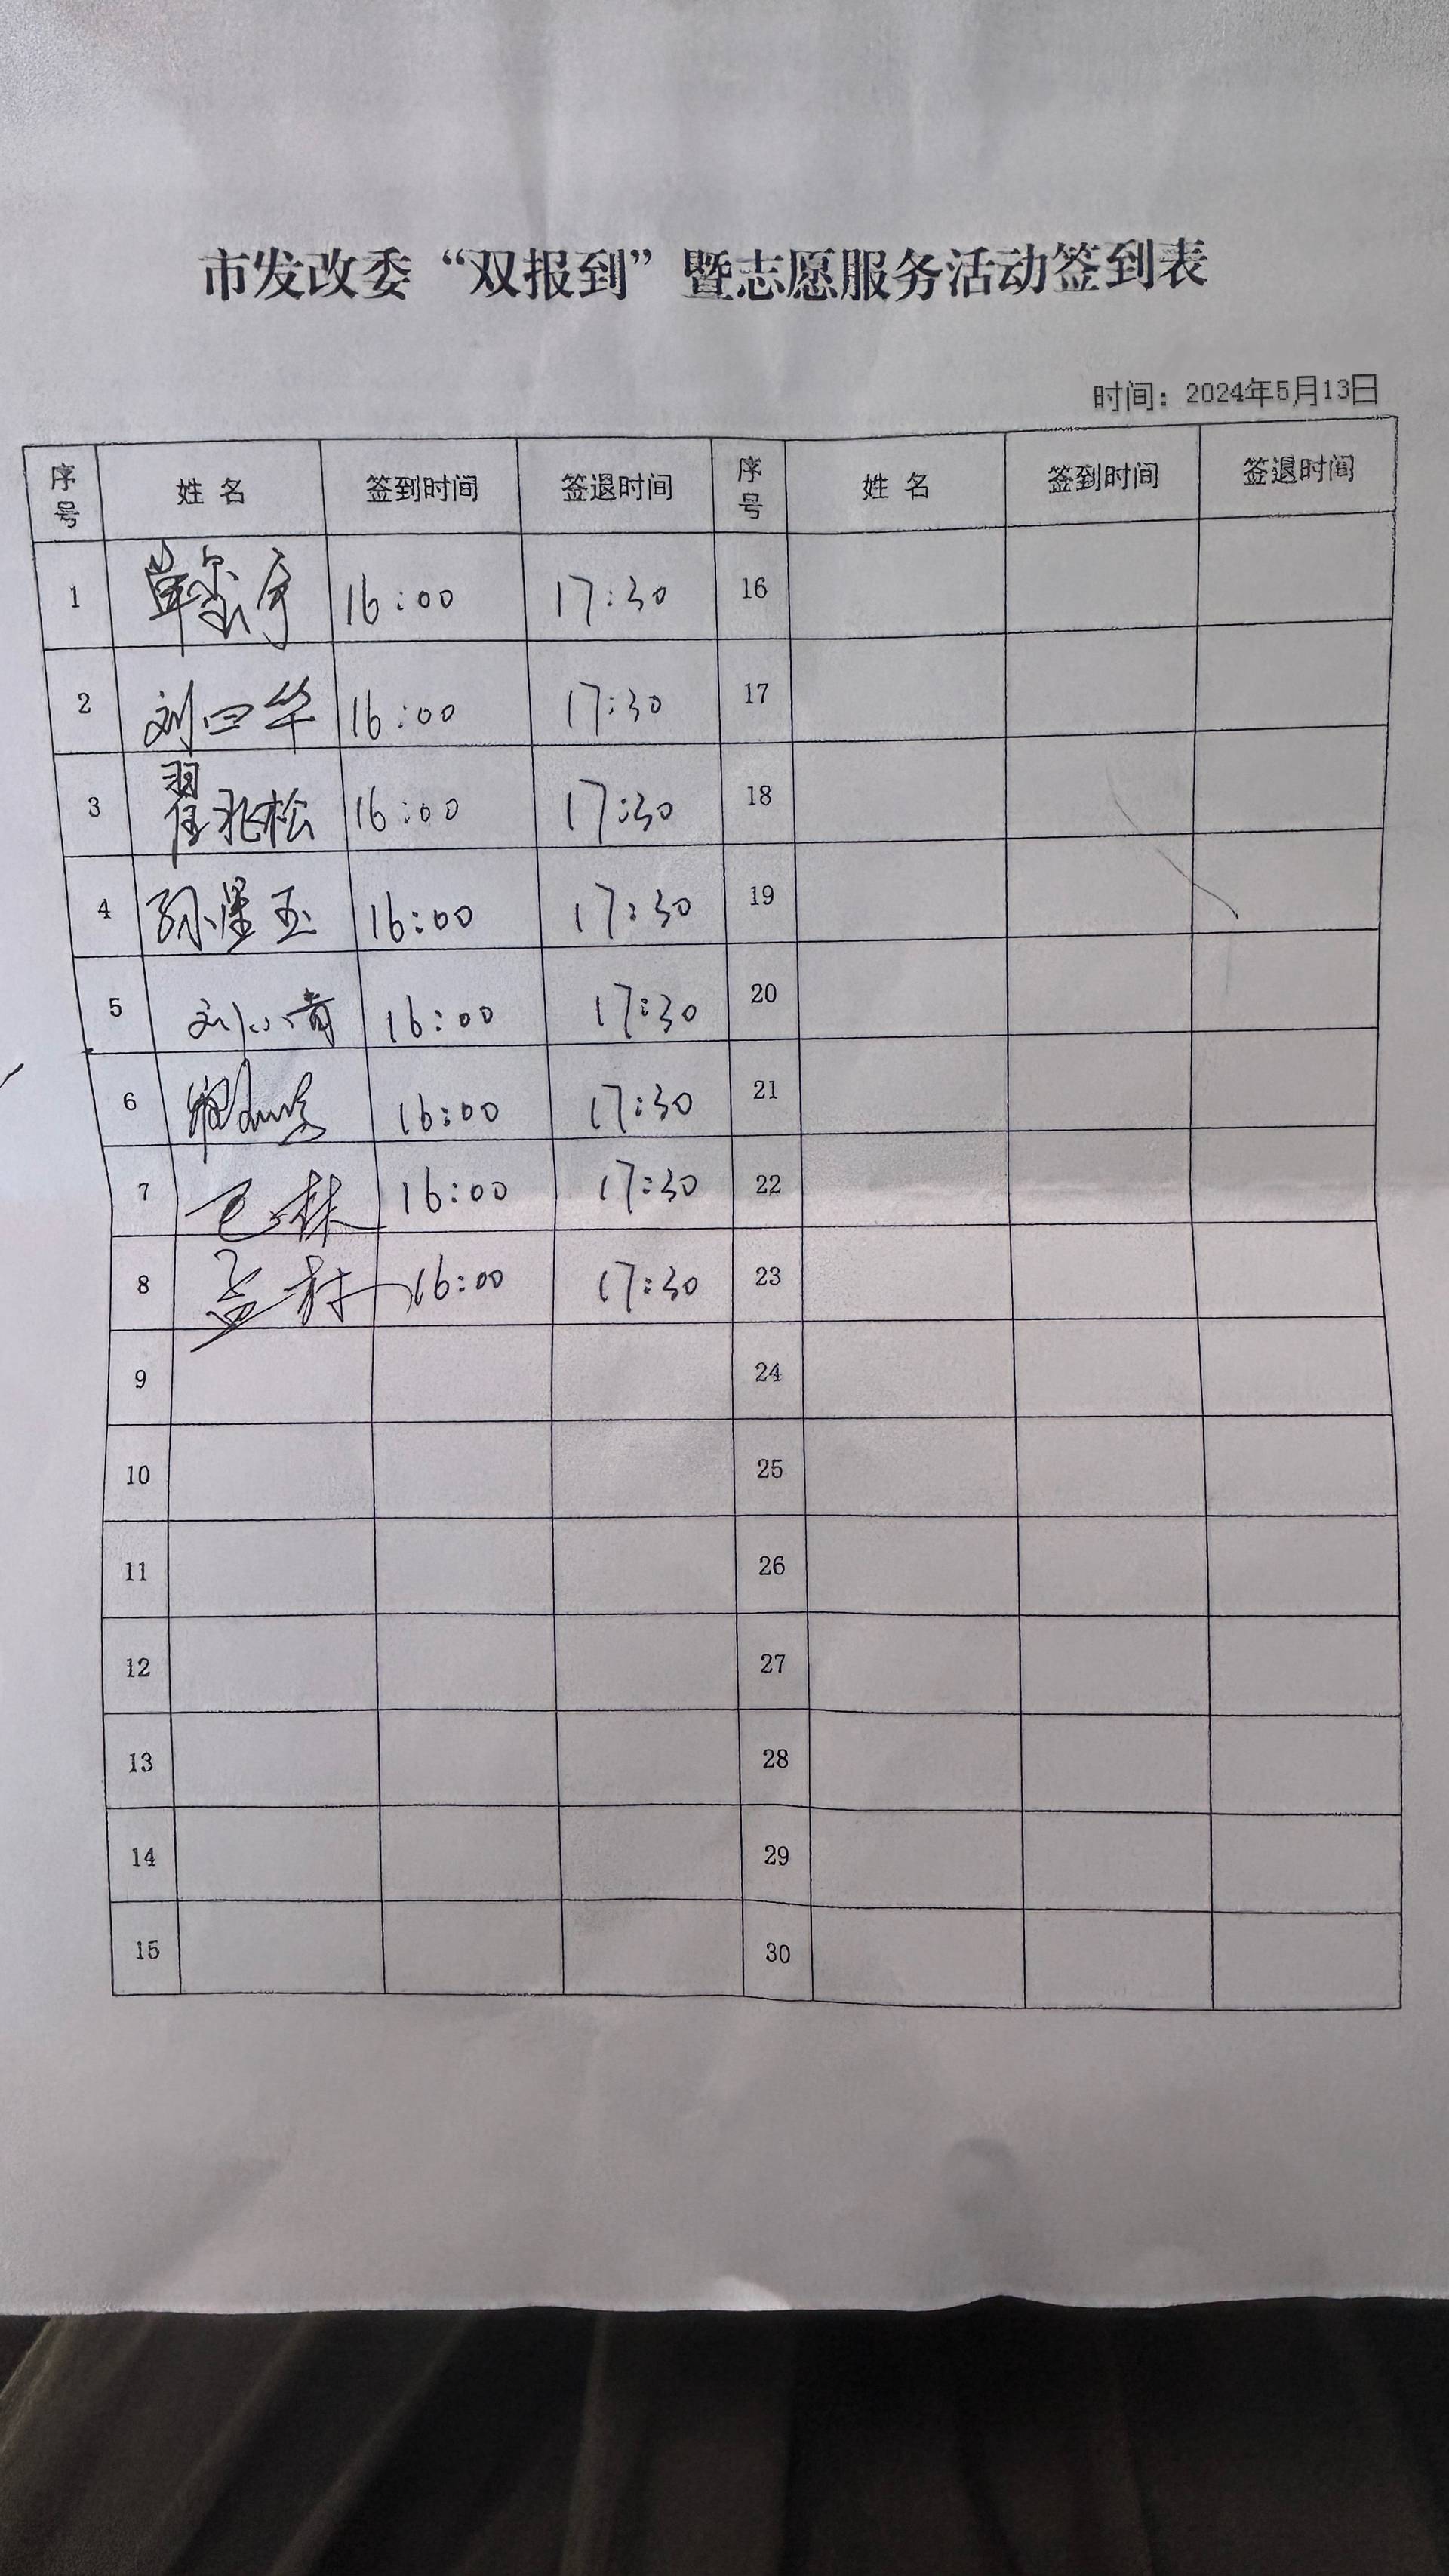 市发改委“双报到”暨志愿服务活动签到表
时间：2024年5月13日
序号 姓名 签到时间 签退时间 序号 姓名 签到时间 签退时间
1 16:00 17:30 16
2 刘四华 16:00 17:30 17
3 翟兆松 16:00 17:30 18
4 孙堡玉 16:00 17:30 19
5 刘小青 16:00 17:30 20
6 16:00 17:30 21
7 16:00 17:30 22
8 孟村 16:00 17:30 23
9 24
10 25
11 26
12 27
13 28
14 29
15 30